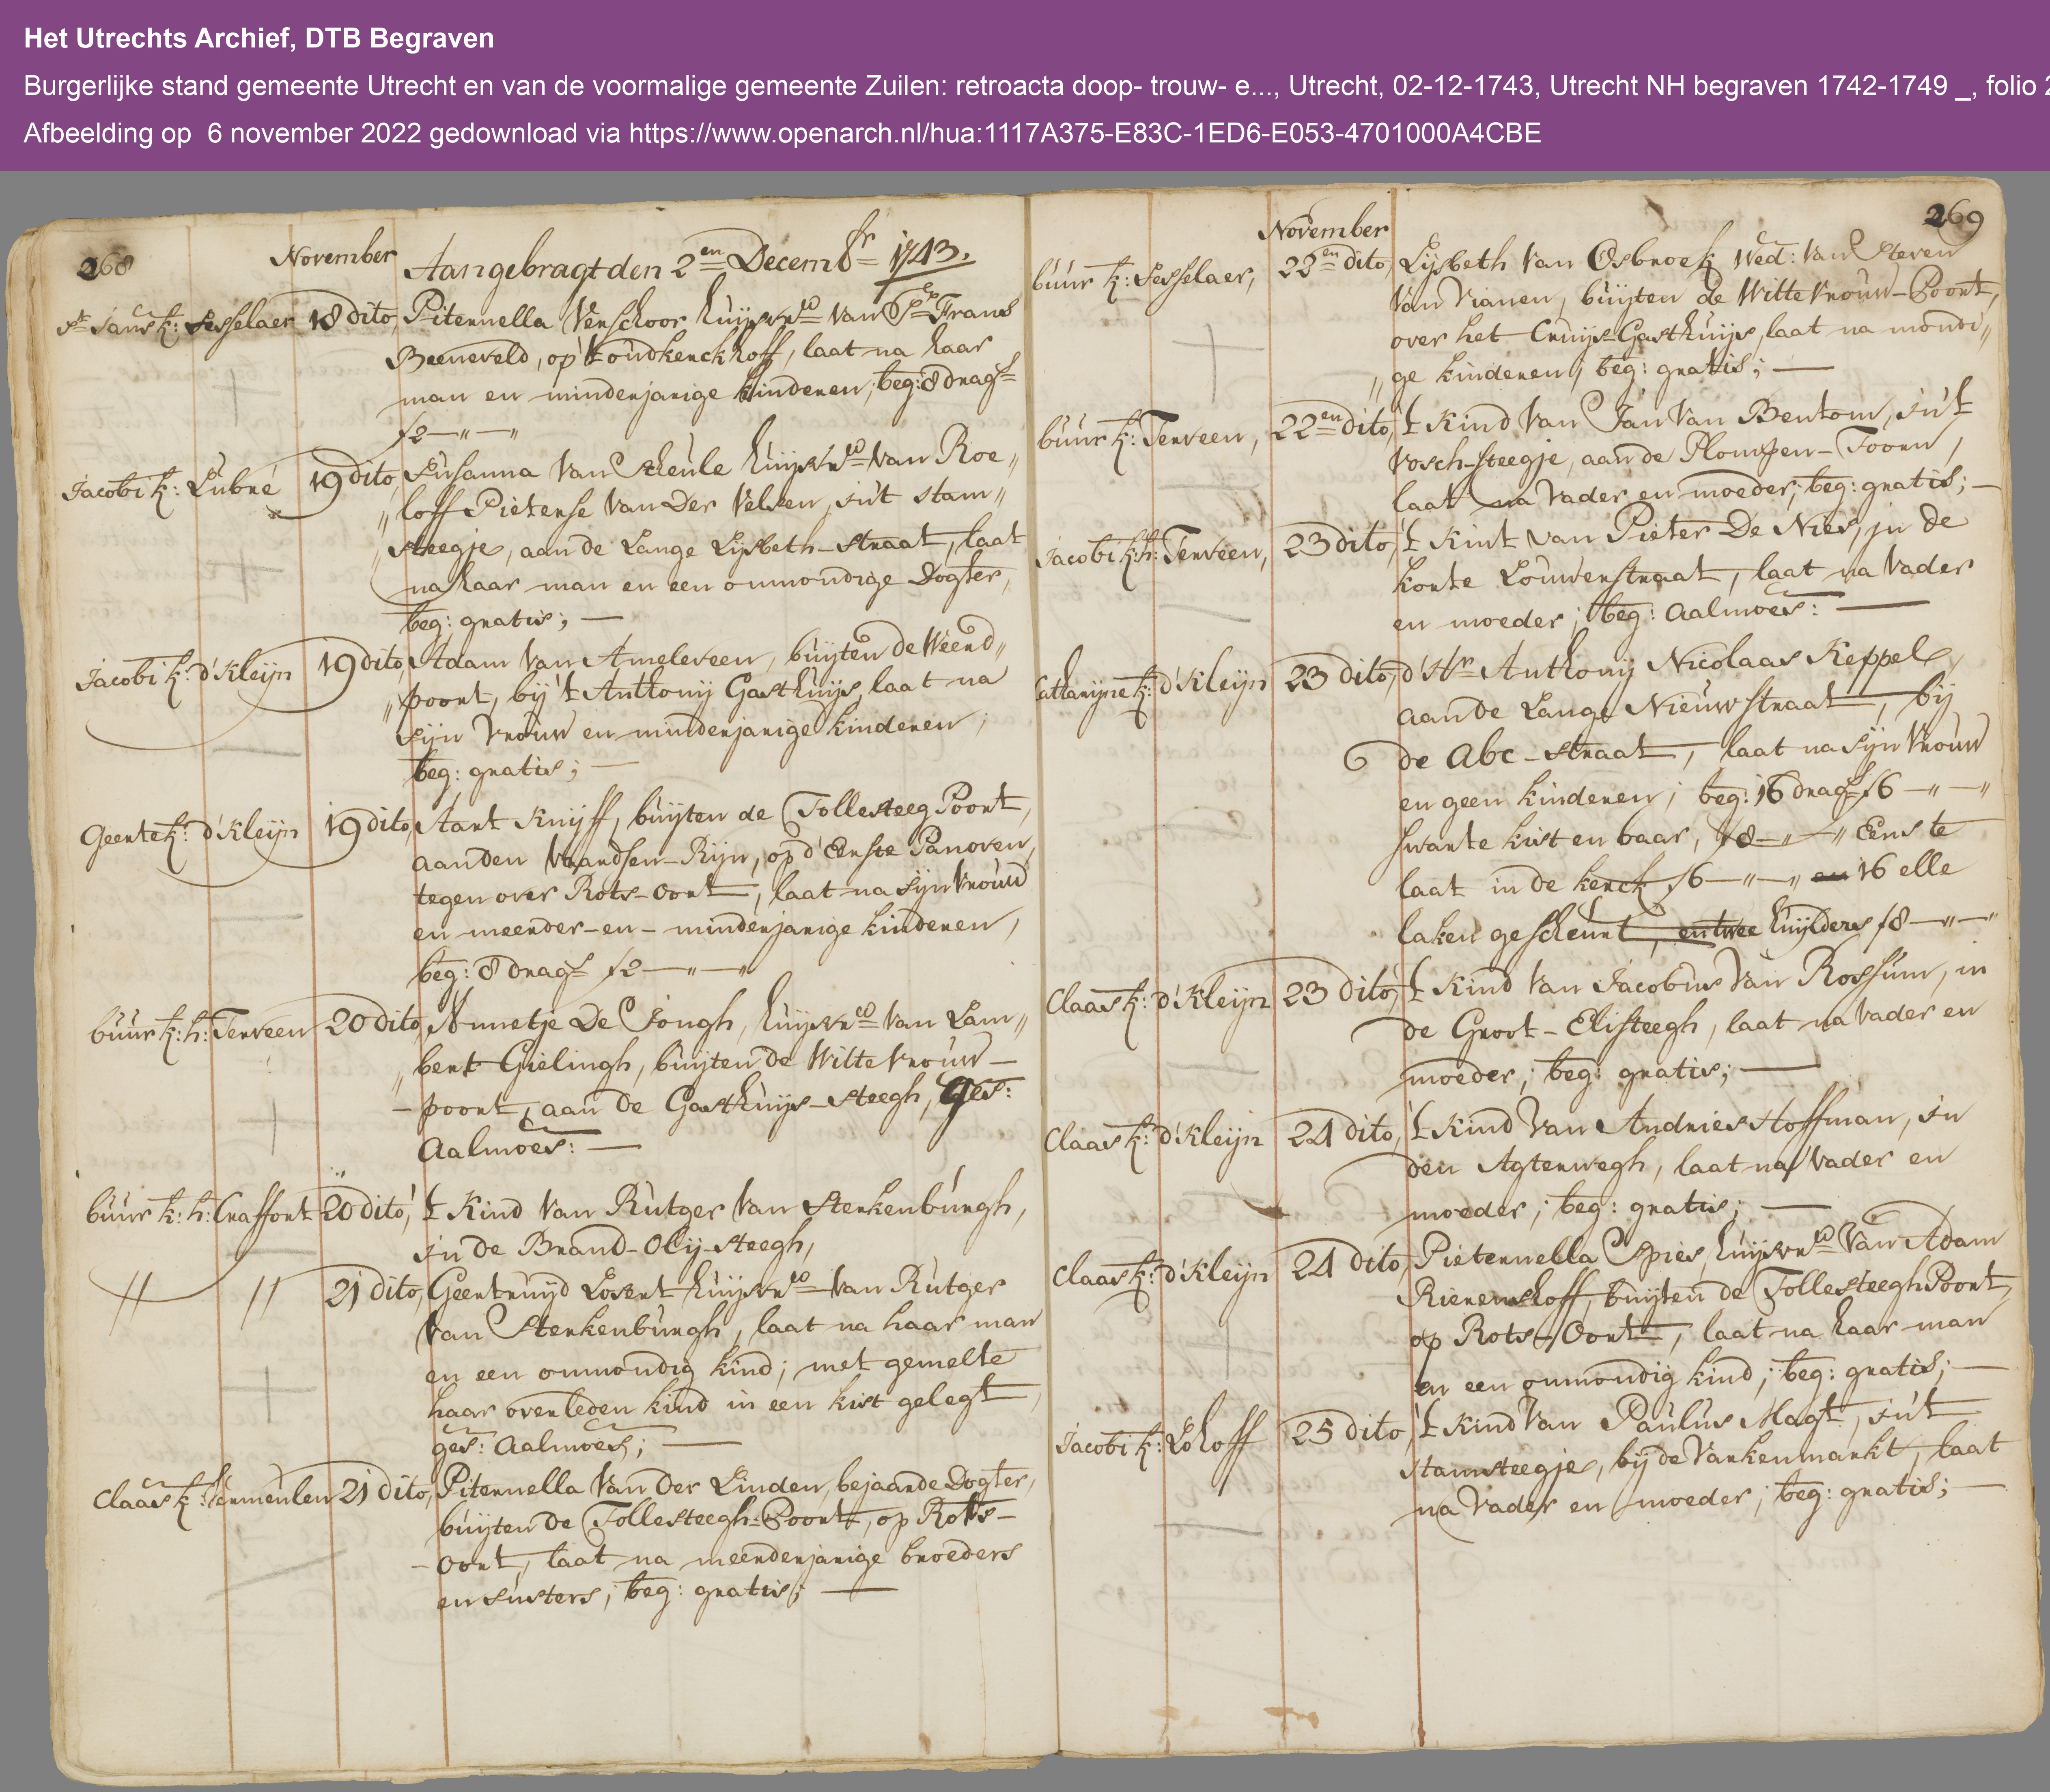 Het Utrechts Archief, DTB Begraven
Burgerlijke stand gemeente Utrecht en van de voormalige gemeente Zuilen: retroacta doop- trouw- e..., Utrecht, 02-12-1743, Utrecht NH begraven 1742-1749 _, folio 2
Afbeelding op 6 november 2022 gedownload via https://www.openarch.nl/hua:1117A375-E83C-1ED6-E053-4701000A4CBE
268
November Aangebragt den 2en Decembr 1743.
St Jans k: Sesselaer 18 dito, Piternella Verschoor huijsvro van Frans
Beeneveld, op 't oudkerckhoff, laat na haar
man en minderjarige kinderen; beg: 8 dragrs
f2—"—"
Jacobi k: Lubré 19 dito, Susanna Van Scheule huijsvro van Roe„
„loff Pieterse Van Der Velsen, in't stam„
„steegje, aan de Lange Lijsbeth-straat, laat
na haar man en een onmondige Dogter,
beg: gratis; —
Jacobi k: d'Kleijn 19 dito, Adam Van Ameleveen, buijten de Weerd„
„poort, bij 't Anthonij Gasthuijs, laat na
sijn vrouw en minderjarige kinderen;
beg: gratis; —
Geerte k: d'Kleijn 19 dito, Aart Kuijff, buijten de Tollesteeg Poort,
aan den Vaardsen-Rijn, op d'Eerste Panoven,
tegen over Rots-oort, laat na sijn Vrouw
en meerder-en-minderjarige kinderen,
beg: 8 dragrs f2—"—"
buur k: h: Terveen 20 dito, Annetje De Jongh, huijsvro van Lam„
„bert Gielingh, buijten de Witte Vrouw—
—poort, aan de Gasthuijs-steegh, ges:
Aalmoes: —
buur k: h: Craffort 20 dito, 't Kind Van Rutger Van Sterkenburgh,
in de Brand-Olij-steegh,
" " 21 dito, Geertruijd Losert huijsvro van Rutger
Van Sterkenburgh, laat na haar man
en een onmondig kind; met gemelte
haar overleden kind in een kist gelegt,
ges: Aalmoes; —
Claas k: Vermeulen 21 dito, Piternella Van der Linden, bejaarde Dogter,
buijten de Tollesteegh-Poort, op Rots—
—oort, laat na meerderjarige broeders
en susters; beg: gratis; —
269
November
buur k: Sesselaer, 22en dito, Lijsbeth Van Osbroek Wed: Van Steven
Van Vianen, buijten de Witte Vrouw-Poort,
over het Cruijs-Gasthuijs, laat na mondi„
„ge kinderen, beg: gratis; —
buur k: Terveen, 22en dito, 't Kind Van Jan Van Bentom, in't
Vosch-steegje, aan de Plompen-Toorn,
laat na vader en moeder; beg: gratis; —
Jacobi k: h: Terveen, 23 dito, 't Kint van Pieter De Nies, in de
korte Louwerstraat, laat na vader
en moeder; beg: aalmoes: —
Catharijne k: d'Kleijn 23 dito, d'Hr Anthonij Nicolaas Keppel,
aan de Lange Nieuwstraat, bij
de Abc-straat, laat na sijn Vrouw
en geen kinderen; beg: 16 dragrs f6—"—"
swarte kist en baar, f8—"—" Eerste
laat in de kerck f6—"—" en 16 elle
laken gescheurt, en twee huijlders f8—"—"
Claas k: d'Kleijn 23 dito, 't Kind Van Jacobus Van Rossum, in
de Groot-Elisteegh, laat na vader en
moeder; beg: gratis; —
Claas k: d'Kleijn 24 dito, 't Kind Van Andries Hoffman, in
den Agterwegh, laat na vader en
moeder; beg: gratis; —
Claas k: d'Kleijn 24 dito, Pieternella Spies, huijsvro Van Adam
Rienershoff, buijten de Tollesteegh Poort,
op Rots-Oort, laat na haar man
en een onmondig kind; beg: gratis; —
Jacobi k: Lohoff 25 dito, 't Kind Van Paulus Magt, in't
stamsteegje, bij de Varkenmarkt, laat
na vader en moeder; beg: gratis; —